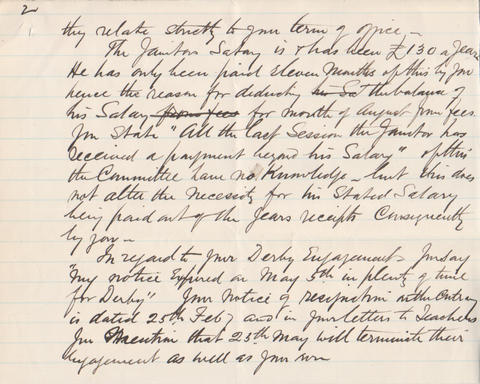 2
they relate strictly to your term of office –
The Janitors Salary is & has been £130 a year
He has only been paid eleven months of this by you
hence the reason for deducting his Sal the balance of
his Salary from fees for month of August from fees.
You State "All the last Session the Janitor has
received a payment beyond his Salary" of this
the Committee have no Knowledge – but this does
not alter the necessity for his Stated Salary
being paid out of the years receipts Consequently
by you –
In regard to your Derby Engagements you say
"my notice Expired on May 5th in plenty of time
for Derby" your notice of resignation on the Contrary
is dated 25th Feby and in your letters to Teachers
you mention that 25th May will terminate their
engagement as well as your own